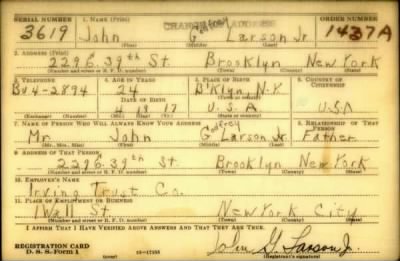 SERIAL NUMBER 1. NAME (Print) CHANGE OF ADDRESS ORDER NUMBER
3619 John Godfrey Larson Jr. 1437A
(First) (Middle) (Last)
2. ADDRESS (Print)
2296. 39th St. Brooklyn New York
(Number and street or R. F. D. number) (Town) (County) (State)
3. TELEPHONE 4. AGE IN YEARS 5. PLACE OF BIRTH 6. COUNTRY OF CITIZENSHIP
24 B'Klyn, N.Y.
BU4-2894 DATE OF BIRTH (Town or county)
4 13 17 U.S.A U.S.A
(Exchange) (Number) (Mo.) (Day) (Yr.) (State or country)
7. NAME OF PERSON WHO WILL ALWAYS KNOW YOUR ADDRESS 8. RELATIONSHIP OF THAT PERSON
Mr. John Godfrey Larson Jr. Father
(Mr., Mrs., Miss) (First) (Middle) (Last)
9. ADDRESS OF THAT PERSON
2296. 39th St. Brooklyn New York
(Number and street or R. F. D. number) (Town) (County) (State)
10. EMPLOYER'S NAME
Irving Trust Co.
11. PLACE OF EMPLOYMENT OR BUSINESS
1 Wall St New York City
(Number and street or R. F. D. number) (Town) (County) (State)
I AFFIRM THAT I HAVE VERIFIED ABOVE ANSWERS AND THAT THEY ARE TRUE.
REGISTRATION CARD
D. S. S. Form 1 (over) 16-17105 John G. Larson Jr.
(Registrant's signature)